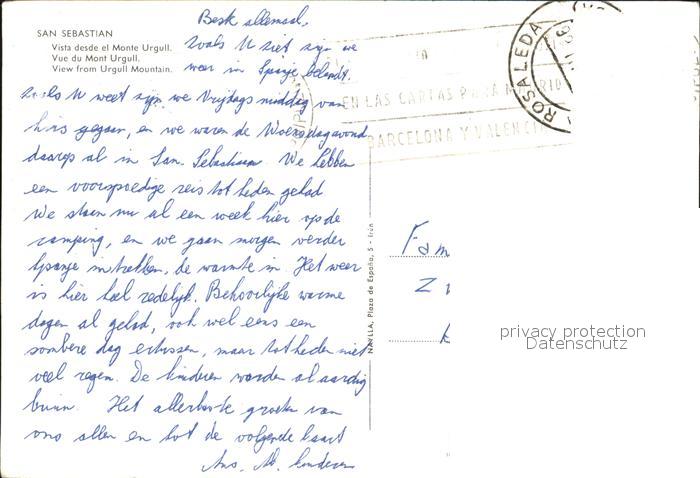 SAN SEBASTIAN
Vista desde el Monte Urgull.
Vue du Mont Urgull.
View from Urgull Mountain.
Beste allemaal,
zoals U ziet zijn we
weer in Spanje beland.
Zoals U weet zijn we Vrijdags middag van
huis gegaan, en we waren de Woensdagavond
daarop al in San. Sebastiaan We hebben
een voorspoedige reis tot heden gehad
We staan nu al een week hier op de
camping, en we gaan morgen verder
Spanje intrekken, de warmte in Het weer
is hier heel redelijk. Behoorlijke warme
dagen al gehad, ook wel eens een
sombere dag ertussen, maar tot heden niet
veel regen. De kinderen worden al aardig
bruin. Het allerbeste groeten van
ons allen en tot de volgende kaart
Ans, kinderen
NAVILLA, Plaza de España, 5 - Irún
EN LAS CARTAS PARA MADRID
BARCELONA Y VALENCIA
ROSALEDA
Fam
Z
k
privacy protection
Datenschutz